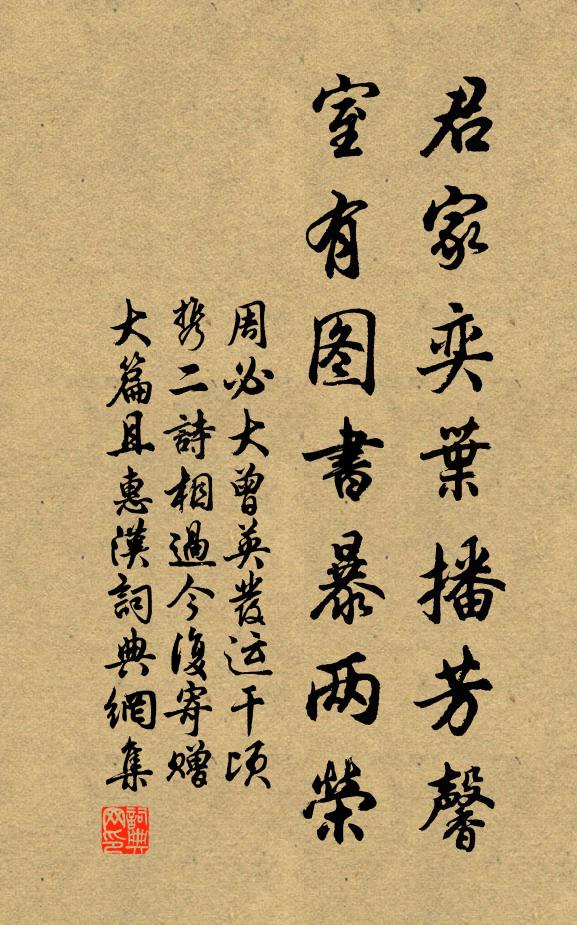 君家奕葉播芳馨
室有图書暴两榮
周必大曾英發运干頃
携二詩相過今復寄贈
大篇且惠漢詞典網集
詞典网印